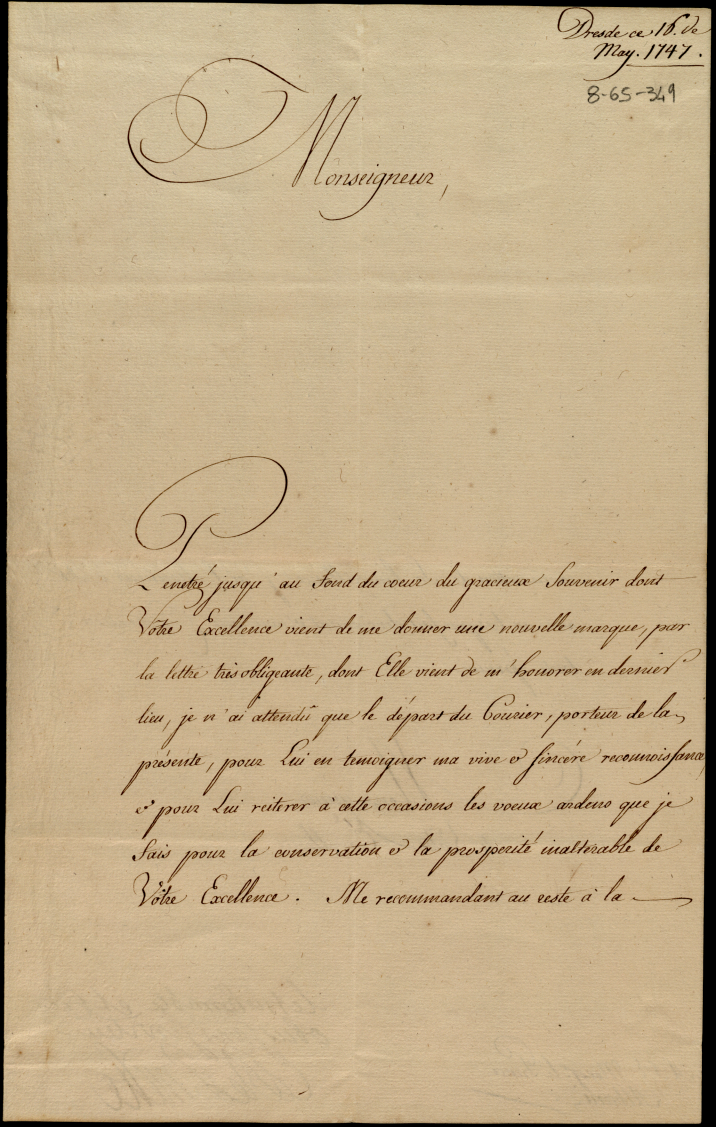 Dresde ce 16. de
May. 1747.
8-65-349
Monseigneur,
Penetré jusqu'au fond du coeur du gracieux Souvenir dont
Vôtre Excellence vient de me donner une nouvelle marque, par
la lettre tres obligeante, dont Elle vient de m'honorer en dernier
lieu, je n'ai attendû que le départ du Courier, porteur de la
présente, pour Lui en temoigner ma vive & sincére reconnoissance,
& pour Lui reiterer à cette occasions les voeux ardens que je
fais pour la conservation & la prosperité inaltérable de
Vôtre Excellence. Me recommandant au reste à la